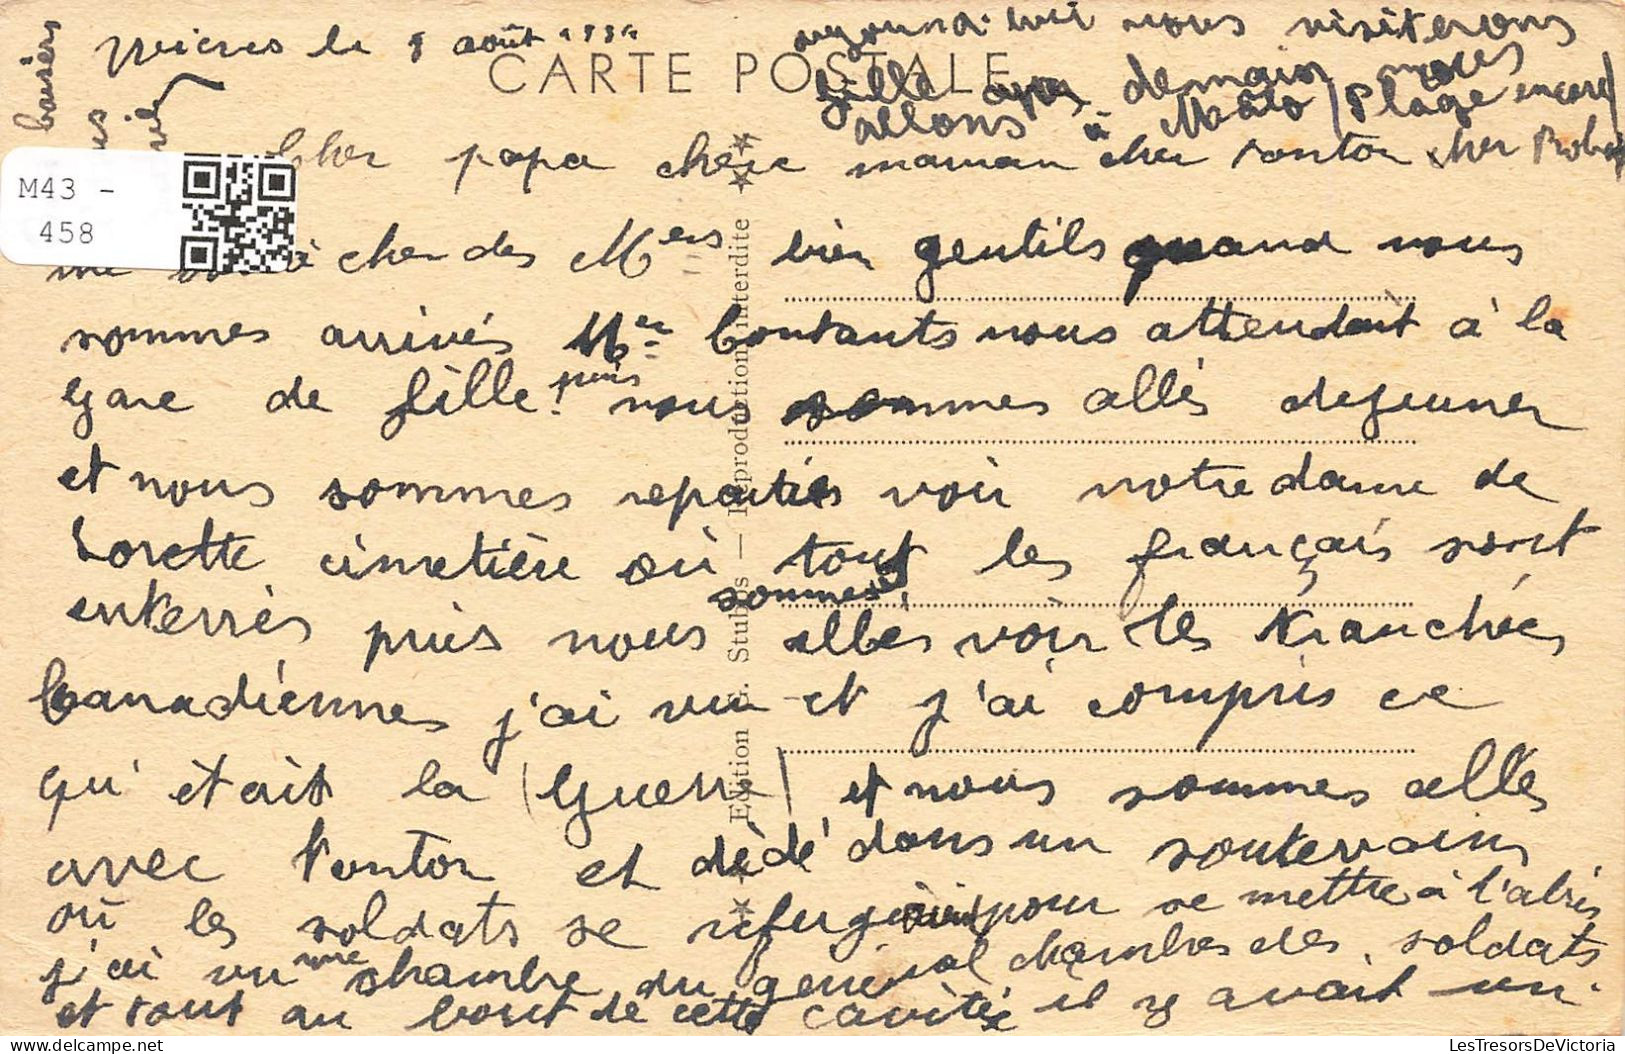 le 8 août
CARTE POSTALE
nous visiterons
Lille après demain nous
allons à Malo / Plage encore /
baisers
Cher papa chère maman cher tonton cher
M43 -
458
à cher des Mers bien gentils quand nous
sommes arrivés Mer nous attendait à la
gare de Lille! puis nous sommes allés dejeuner
et nous sommes repartis voir notre dame de
Lorette cimetière où tout les français sont
enterrés puis nous sommes allés voir les tranchées
Canadiennes j'ai vu et j'ai compris ce
qu'était la (Guerre) et nous sommes allés
avec tonton et dèdé dans un souterains
où les soldats se refugiaient pour se mettre à l'abris
j'ai vu une chambre du general chambres des soldats
et tout au bout de cette cavitée il y avait un
Edition G. Stubbs — Reproduction interdite
LesTresorsDeVictoria